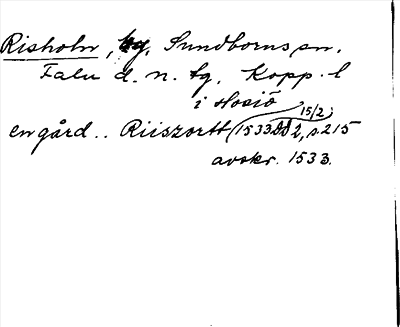 Risholn, by, Sundborns sn.
Falu d. n. tg. Kopp. l
i Hosjö
15/2
en gård.. Riiszortt (1533 DD 2, s 215
avskr. 1533.